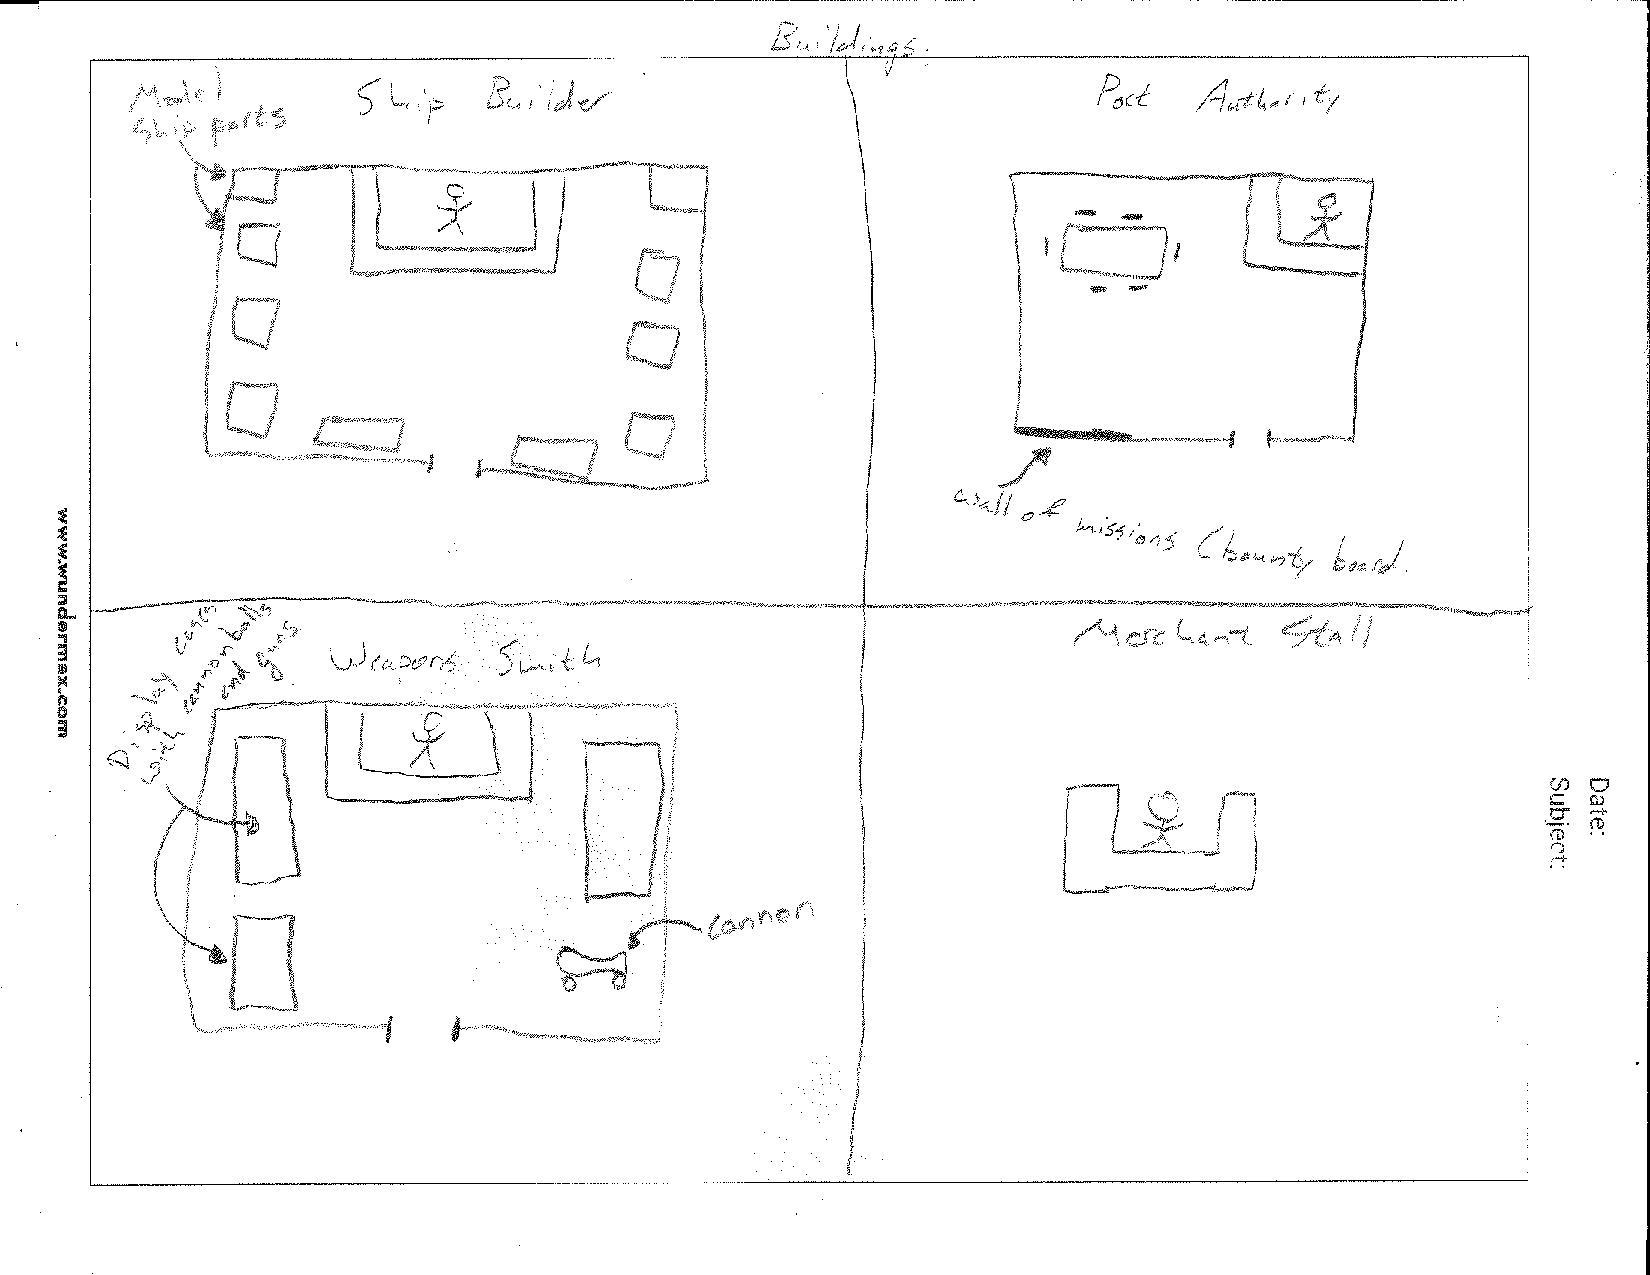 Buildings.
Model
Ship parts
Ship Builder
Port Authority
wall of missions (bounty board.
Weapons Smith
Display cases
with cannon balls
and guns
cannon
Merchant Stall
www.wundermax.com
Date:
Subject: